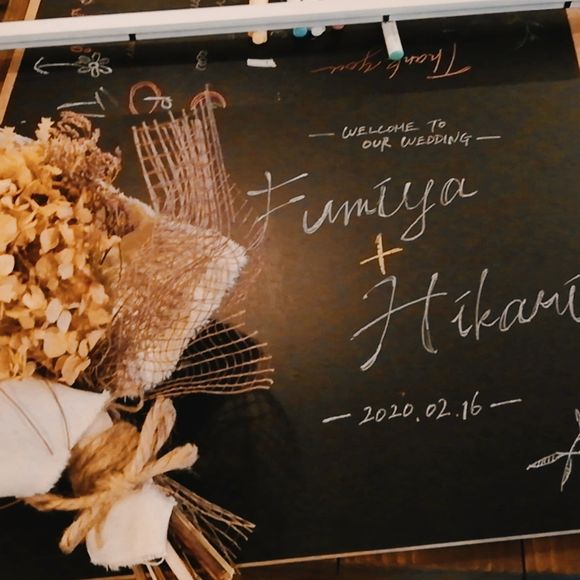 Thank you
WELCOME TO
OUR WEDDING
Fumiya
+
Hikari
2020.02.16